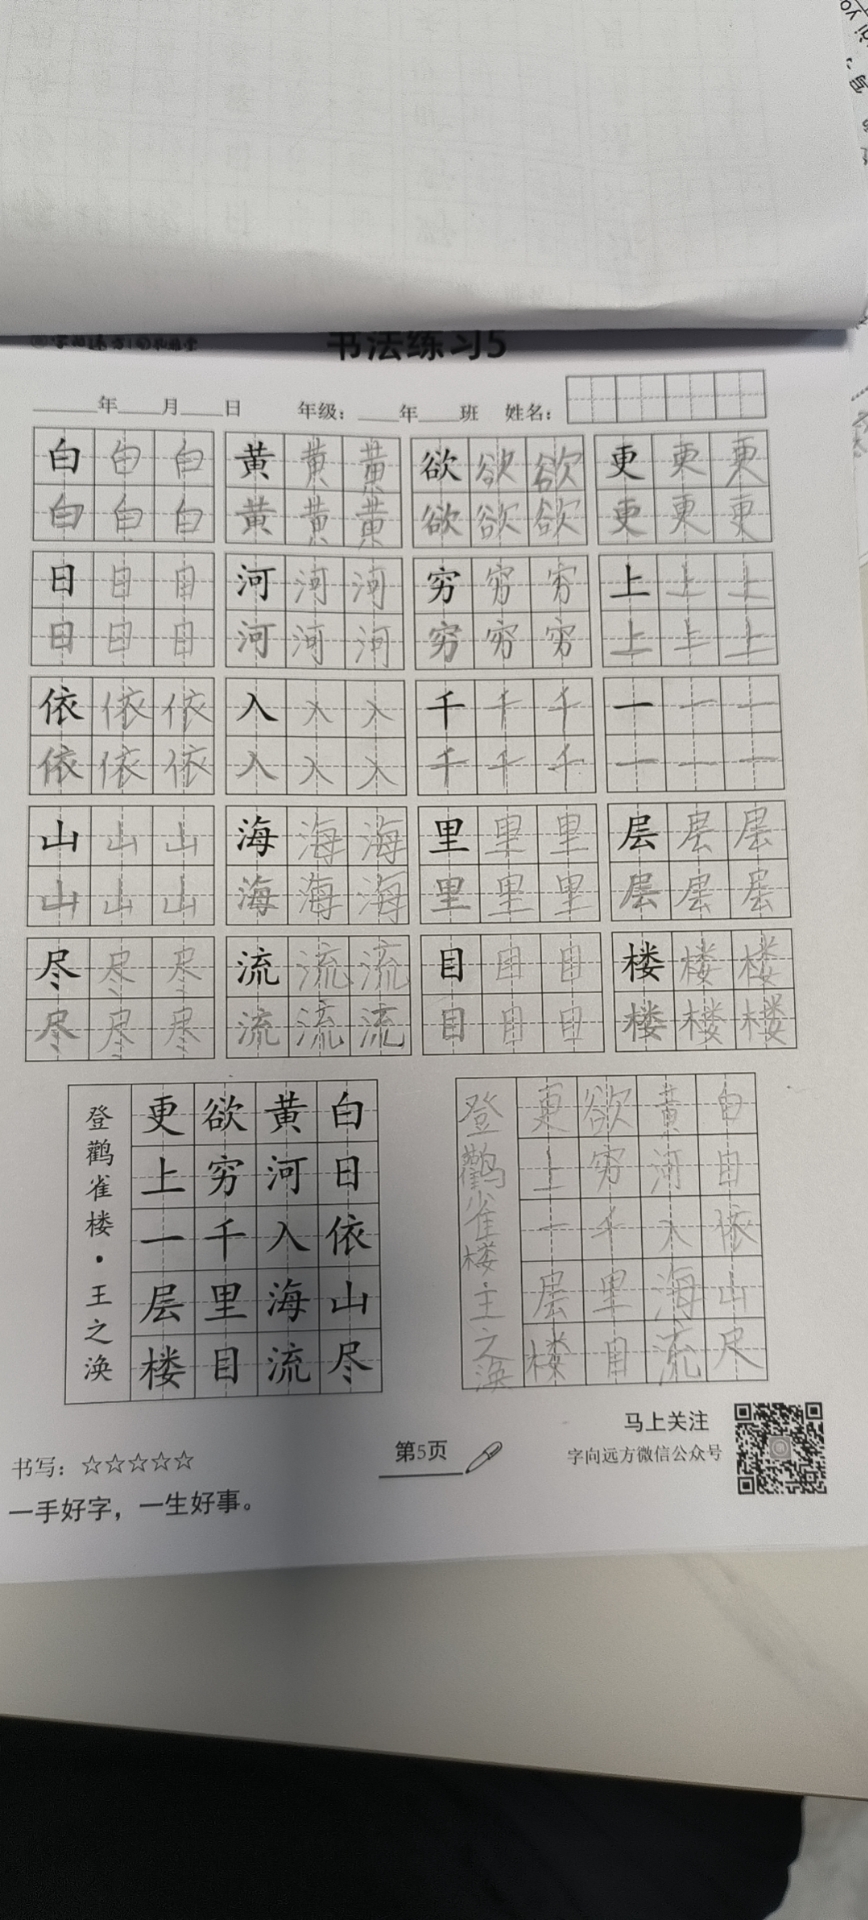 书法练习5
年 月 日 年级： 年 班 姓名：
白白白 黄黄黄 欲欲欲 更更更
白白白 黄黄黄 欲欲欲 更更更
日日日 河河河 穷穷穷 上上上
日日日 河河河 穷穷穷 上上上
依依依 入入入 千千千 一一一
依依依 入入入 千千千 一一一
山山山 海海海 里里里 层层层
山山山 海海海 里里里 层层层
尽尽尽 流流流 目目目 楼楼楼
尽尽尽 流流流 目目目 楼楼楼
白日依山尽
黄河入海流
欲穷千里目
更上一层楼
登鹳雀楼·王之涣
白日依山尽
黄河入海流
欲穷千里目
更上一层楼
登鹳雀楼·王之涣
书写：☆☆☆☆☆
一手好字，一生好事。
第5页
马上关注
字向远方微信公众号